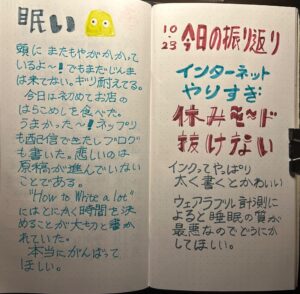 眠い
頭にまたもやがかかって
いるよ〜!でもまだじんま
は来てない。ギリ耐えてる。
今日は初めてお店の
はらこめしを食べた。
うまかった〜!ネップリ
も配信できたしブログ
も書いた。悲しいのは
原稿が進んでいない
ことである。
"How to Write a lot"
にはとにかく時間を決
めることが大切と書か
れていた。
本当にがんばって
ほしい。
10-23 今日の振り返り
インターネット
やりすぎ
休み〜〜ド
抜けない
インクってやっぱり
太く書くとかわいい
ウェアラブル計測に
よると睡眠の質が
最悪なのでどうにか
してほしい。